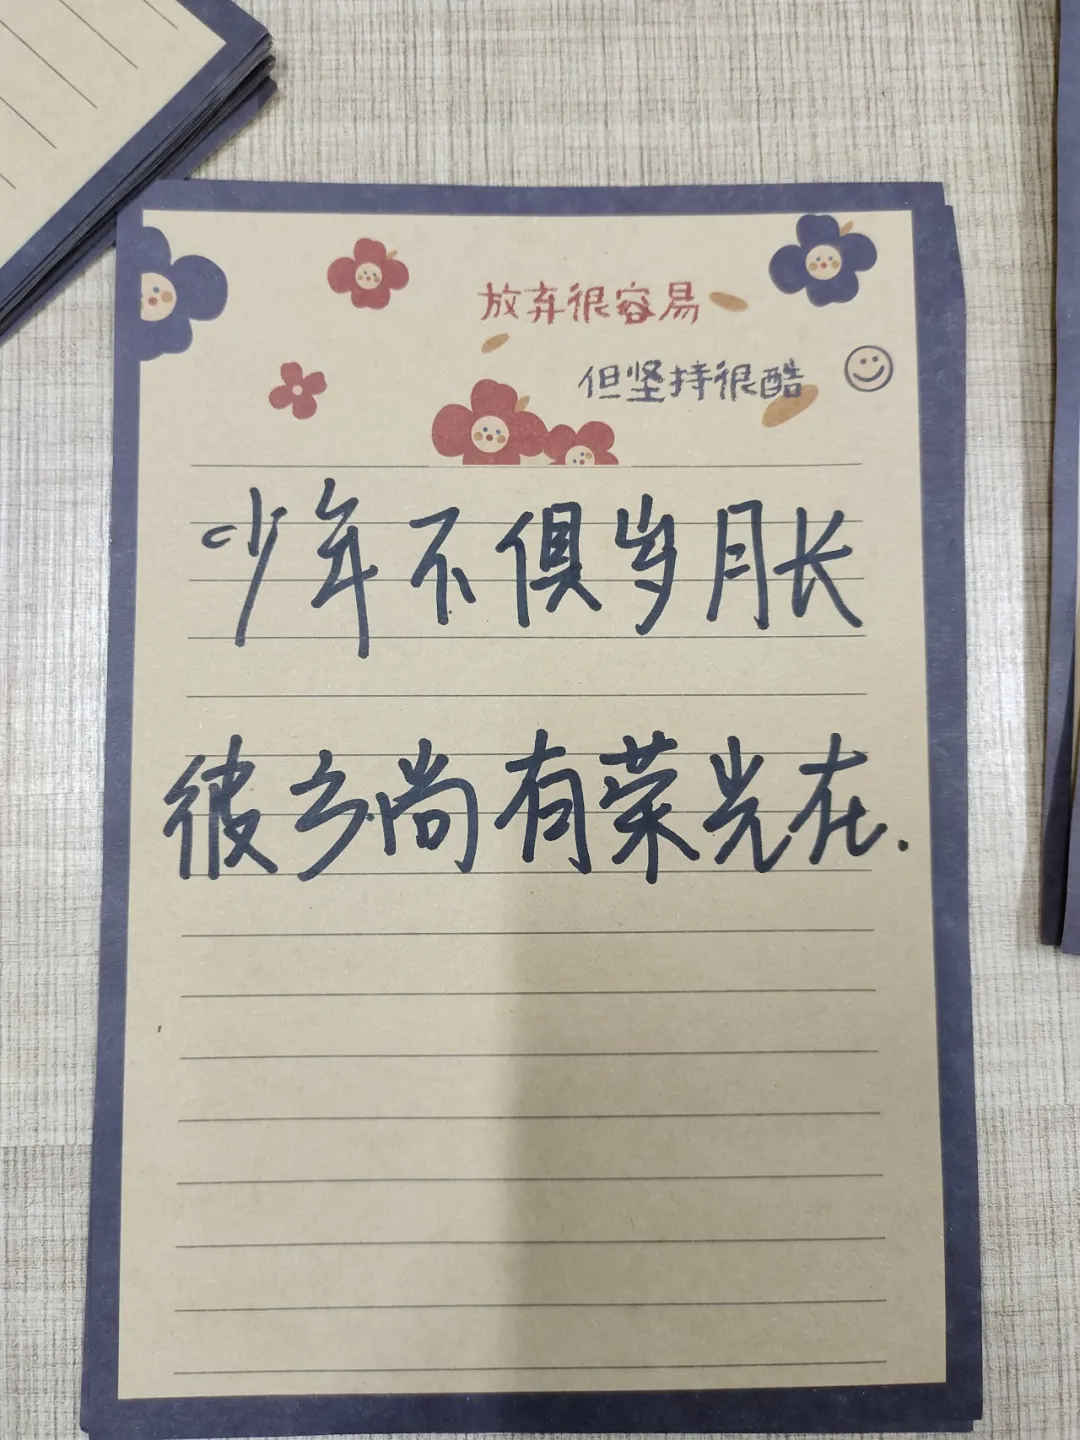 放弃很容易
但坚持很酷
少年不俱岁月长
彼方尚有荣光在.